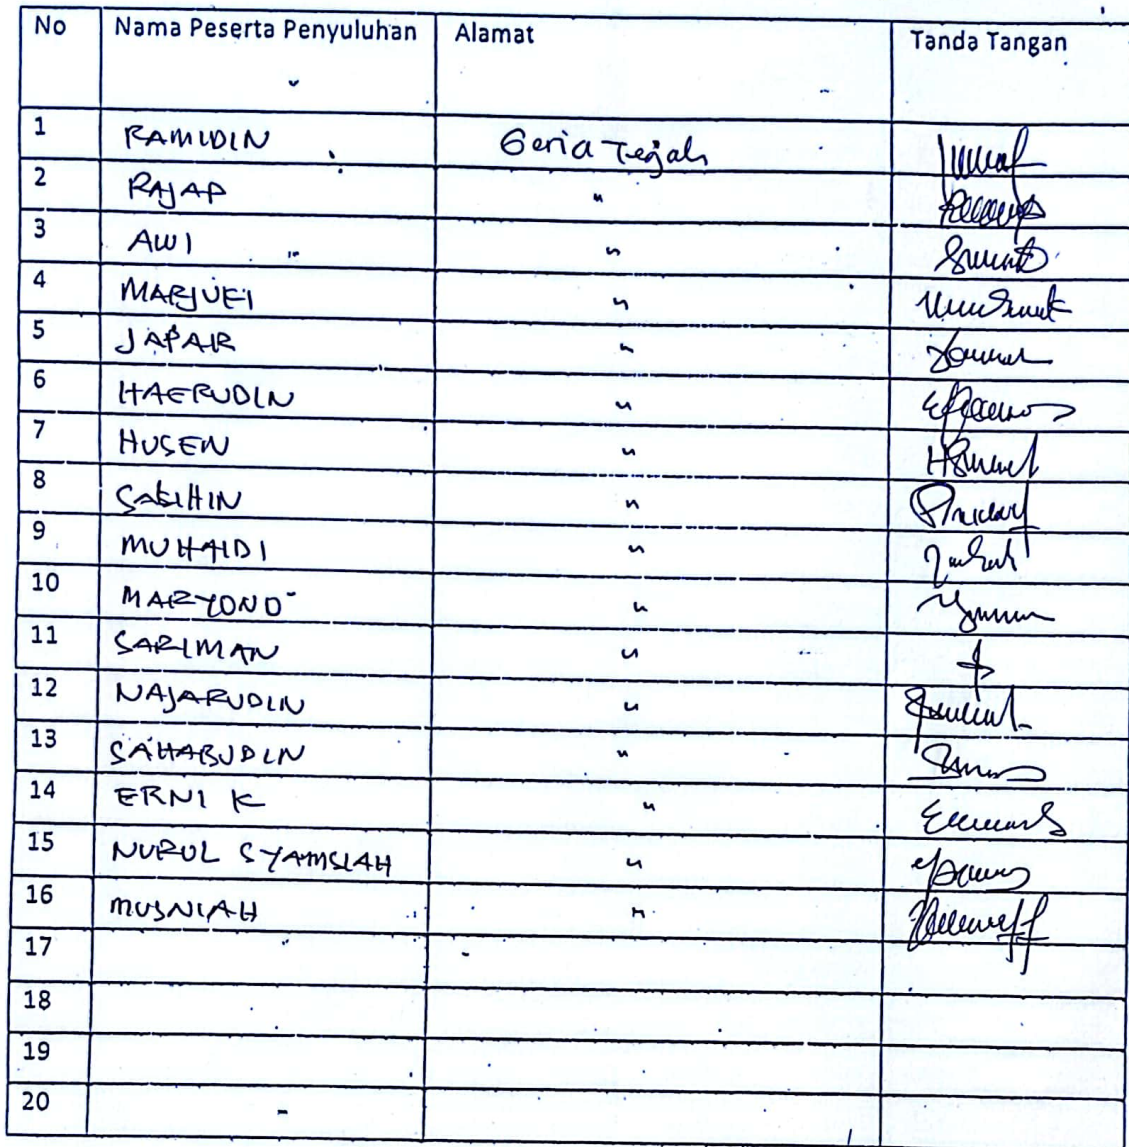 No Nama Peserta Penyuluhan Alamat Tanda Tangan
1 RAMIDIN Geria Tegah
2 RAJAP "
3 AWI "
4 MARJUKI "
5 JAPAR "
6 HAERUDIN "
7 HUSEN "
8 "
9 MUHAIDI "
10 MARYONO "
11 SARIMAN "
12 NAJARUDIN "
13 SAHABUDIN "
14 ERNI K "
15 NURUL SYAMSIAH "
16 MUSNIAH "
17
18
19
20